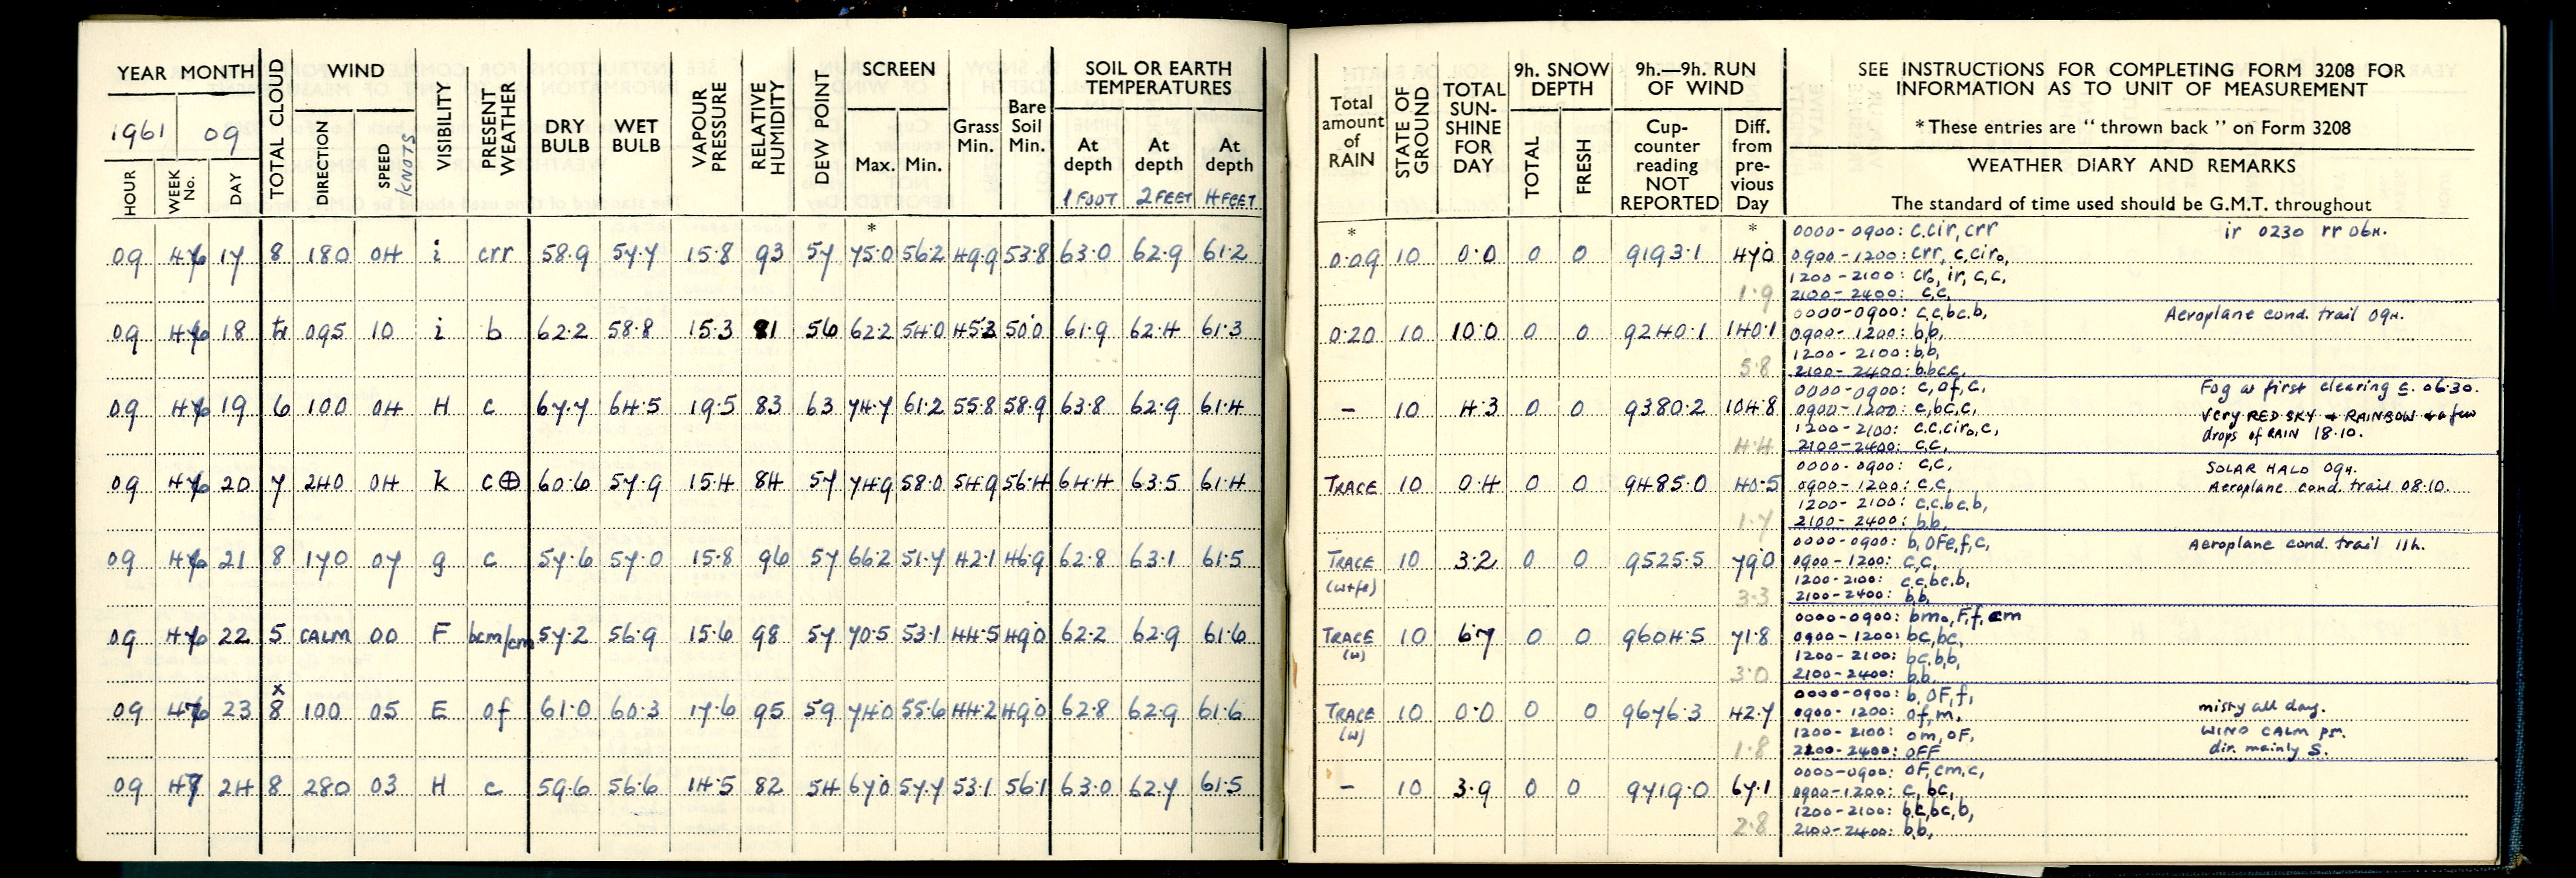 YEAR MONTH
1961 09
HOUR
WEEK No.
DAY
TOTAL CLOUD
WIND
DIRECTION
SPEED
KNOTS
VISIBILITY
PRESENT WEATHER
DRY BULB
WET BULB
VAPOUR PRESSURE
RELATIVE HUMIDITY
DEW POINT
SCREEN
Max. Min.
Grass Min.
Bare Soil Min.
SOIL OR EARTH TEMPERATURES
At depth At depth At depth
1 FOOT 2 FEET 4 FEET
Total amount of RAIN
STATE OF GROUND
TOTAL SUN-SHINE FOR DAY
9h. SNOW DEPTH
TOTAL
FRESH
9h.—9h. RUN OF WIND
Cup-counter reading NOT REPORTED
Diff. from pre-vious Day
SEE INSTRUCTIONS FOR COMPLETING FORM 3208 FOR
INFORMATION AS TO UNIT OF MEASUREMENT
* These entries are “ thrown back ” on Form 3208
WEATHER DIARY AND REMARKS
The standard of time used should be G.M.T. throughout
* * *
09 17 8 180 04 i crr 58.9 57.7 15.8 93 57 75.0 56.2 49.9 53.8 63.0 62.9 61.2 0.09 10 0.0 0 0 9193.1 47.0
1.9
0000-0900: c.cir, crr ir 0230 rr 06H.
0900-1200: crr, c,ciro,
1200-2100: cro, ir, c,c,
2100-2400: c,c,
09 18 tr 095 10 i b 62.2 58.8 15.3 81 56 62.2 54.0 45.3 50.0 61.9 62.4 61.3 0.20 10 10.0 0 0 9240.1 140.1
5.8
0000-0900: c,c,bc.b, Aeroplane cond. trail 09H.
0900-1200: b,b,
1200-2100: b,b,
2100-2400: b,bc,c,
09 19 6 100 04 H c 67.7 64.5 19.5 83 63 74.7 61.2 55.8 58.9 63.8 62.9 61.4 - 10 4.3 0 0 9380.2 104.8
4.4
0000-0900: c, of, c, Fog at first clearing c. 06.30.
0900-1200: c,bc,c, Very RED SKY + RAINBOW + a few
1200-2100: c.c.ciro,c, drops of RAIN 18.10.
2100-2400: c,c,
09 20 7 240 04 k c⊕ 60.6 57.9 15.4 84 57 74.9 58.0 54.9 56.4 64.4 63.5 61.4 TRACE 10 0.4 0 0 9485.0 40.5
1.7
0000-0900: c,c, SOLAR HALO 09H.
0900-1200: c,c, Aeroplane cond. trail 08.10.
1200-2100: c,c.bc.b,
2100-2400: b,b,
09 21 8 170 07 g c 57.6 57.0 15.8 96 57 66.2 51.7 42.1 46.9 62.8 63.1 61.5 TRACE 10 3.2 0 0 9525.5 79.0
(w+fe) 3.3
0000-0900: b, OFe,f,c, Aeroplane cond. trail 11h.
0900-1200: c,c,
1200-2100: c.c,bc.b,
2100-2400: b,b,
09 22 5 CALM 00 F bcm/cm 57.2 56.9 15.6 98 57 70.5 53.1 44.5 49.0 62.2 62.9 61.6 TRACE 10 6.7 0 0 9604.5 71.8
(w) 3.0
0000-0900: bmo, F,f, cm
0900-1200: bc,bc,
1200-2100: bc.b,b,
2100-2400: b,b,
x
09 23 8 100 05 E of 61.0 60.3 17.6 95 59 74.0 55.6 44.2 49.0 62.8 62.9 61.6 TRACE 10 0.0 0 0 9676.3 42.7
(w) 1.8
0000-0900: b, OF,f,
0900-1200: of,m, misty all day.
1200-2100: om,OF, WIND CALM pm.
2100-2400: OFF dir. mainly S.
09 24 8 280 03 H c 59.6 56.6 14.5 82 54 67.0 57.7 53.1 56.1 63.0 62.7 61.5 - 10 3.9 0 0 9719.0 67.1
2.8
0000-0900: OF,cm,c,
0900-1200: c, bc,
1200-2100: bc,bc,b,
2100-2400: b,b,